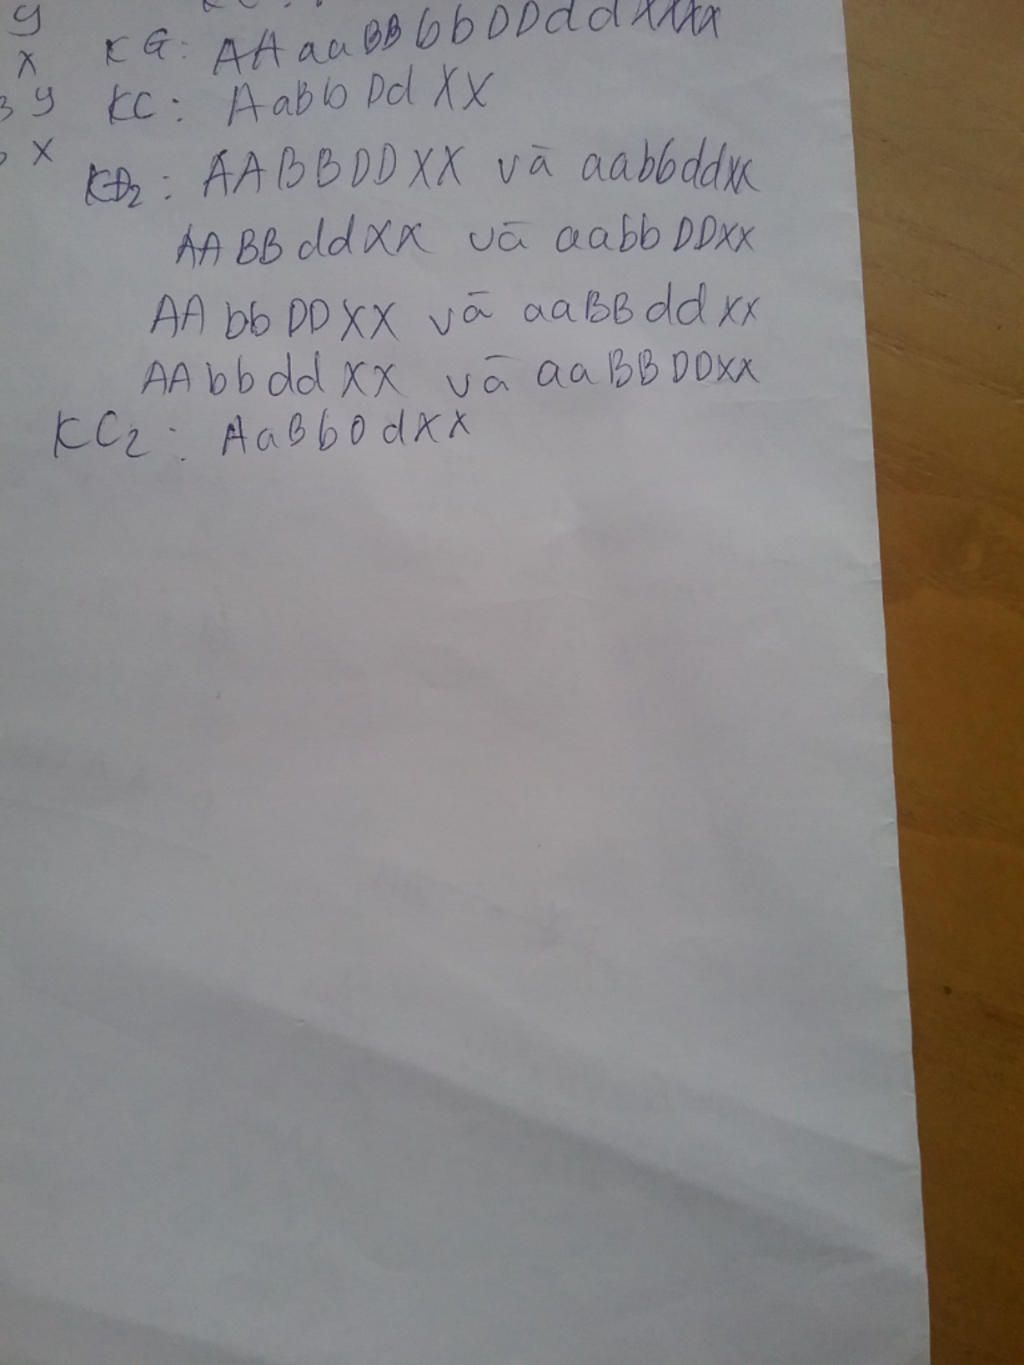 y
x KG: AAaaBBbbDDddXXXX
y KC: AaBbDdXX
x
KĐ2: AABBDDXX và aabbddXX
AABBddXX và aabbDDXX
AAbbDDXX và aaBBddXX
AAbbddXX và aaBBDDXX
KC2: AaBbDdXX